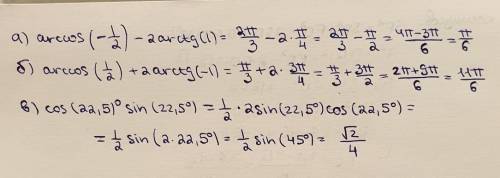 а) arccos(-1/2) - 2arctg(1) = 2π/3 - 2·π/4 = 2π/3 - π/2 = 4π-3π/6 = π/6
б) arccos(1/2) + 2arctg(-1) = π/3 + 2·3π/4 = π/3 + 3π/2 = 2π+9π/6 = 11π/6
в) cos(22,5)° sin(22,5°) = 1/2 · 2sin(22,5°)cos(22,5°) =
= 1/2 sin(2·22,5°) = 1/2 sin(45°) = √2/4